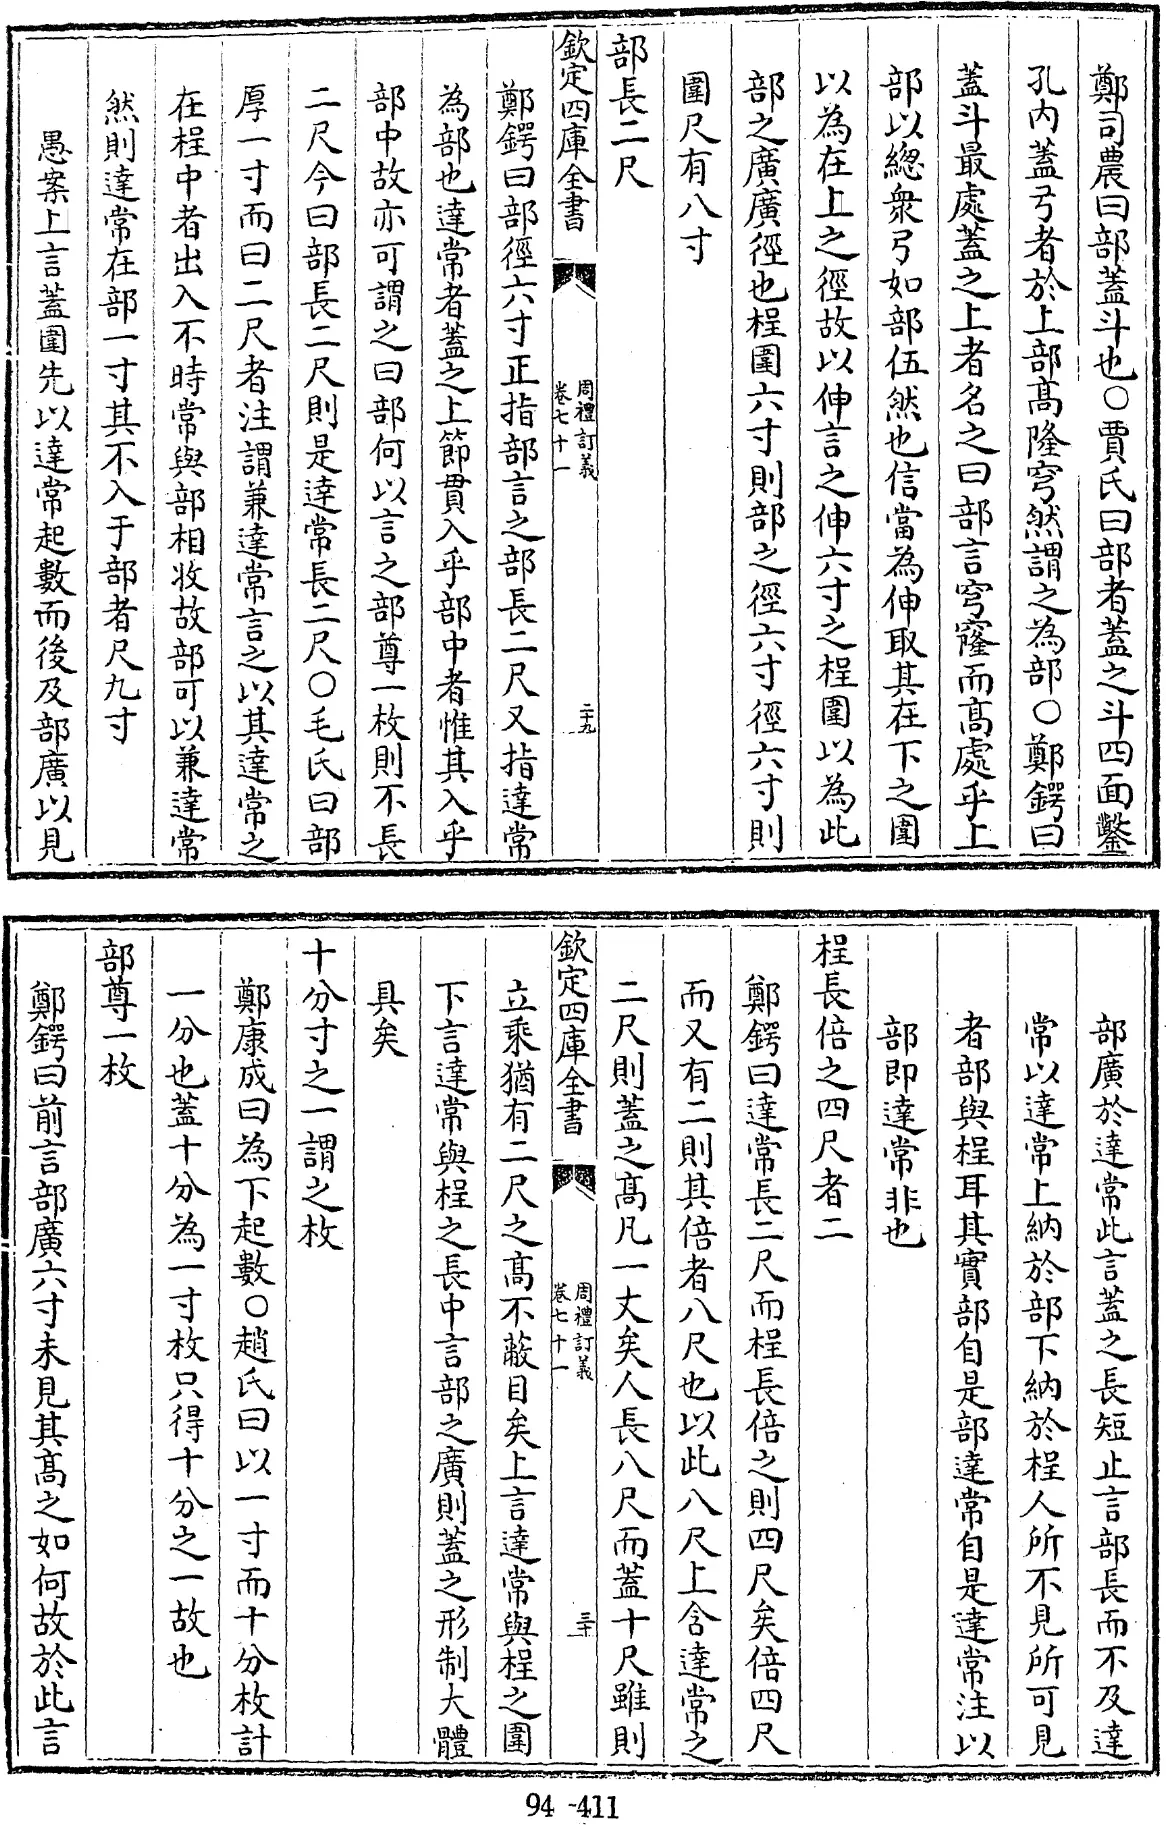 鄭司農曰部蓋斗也○賈氏曰部者蓋之斗四面鑿
孔内蓋弓者於上部髙隆穹然謂之為部○鄭鍔曰
蓋斗最處蓋之上者名之曰部言穹窿而髙處乎上
部以總衆弓如部伍然也信當為伸取其在下之圍
以為在上之徑故以伸言之伸六寸之桯圍以為此
部之廣廣徑也桯圍六寸則部之徑六寸徑六寸則
圍尺有八寸
部長二尺
欽定四庫全書
周禮訂義
卷七十一
二十九
鄭鍔曰部徑六寸正指部言之部長二尺又指達常
為部也達常者蓋之上節貫入乎部中者惟其入乎
部中故亦可謂之曰部何以言之部尊一枚則不長
二尺今曰部長二尺則是達常長二尺○毛氏曰部
厚一寸而曰二尺者注謂兼達常言之以其達常之
在桯中者出入不時常與部相收故部可以兼達常
然則達常在部一寸其不入于部者尺九寸
愚案上言蓋圍先以達常起數而後及部廣以見
部廣於達常此言蓋之長短止言部長而不及達
常以達常上納於部下納於桯人所不見所可見
者部與桯耳其實部自是部達常自是達常注以
部即達常非也
桯長倍之四尺者二
鄭鍔曰達常長二尺而桯長倍之則四尺矣倍四尺
而又有二則其倍者八尺也以此八尺上含達常之
二尺則蓋之髙凡一丈矣人長八尺而蓋十尺雖則
欽定四庫全書
周禮訂義
卷七十一
三十
立乘猶有二尺之髙不蔽目矣上言達常與桯之圍
下言達常與桯之長中言部之廣則蓋之形制大體
具矣
十分寸之一謂之枚
鄭康成曰為下起數○趙氏曰以一寸而十分枚計
一分也蓋十分為一寸枚只得十分之一故也
部尊一枚
鄭鍔曰前言部廣六寸未見其髙之如何故於此言
94-411